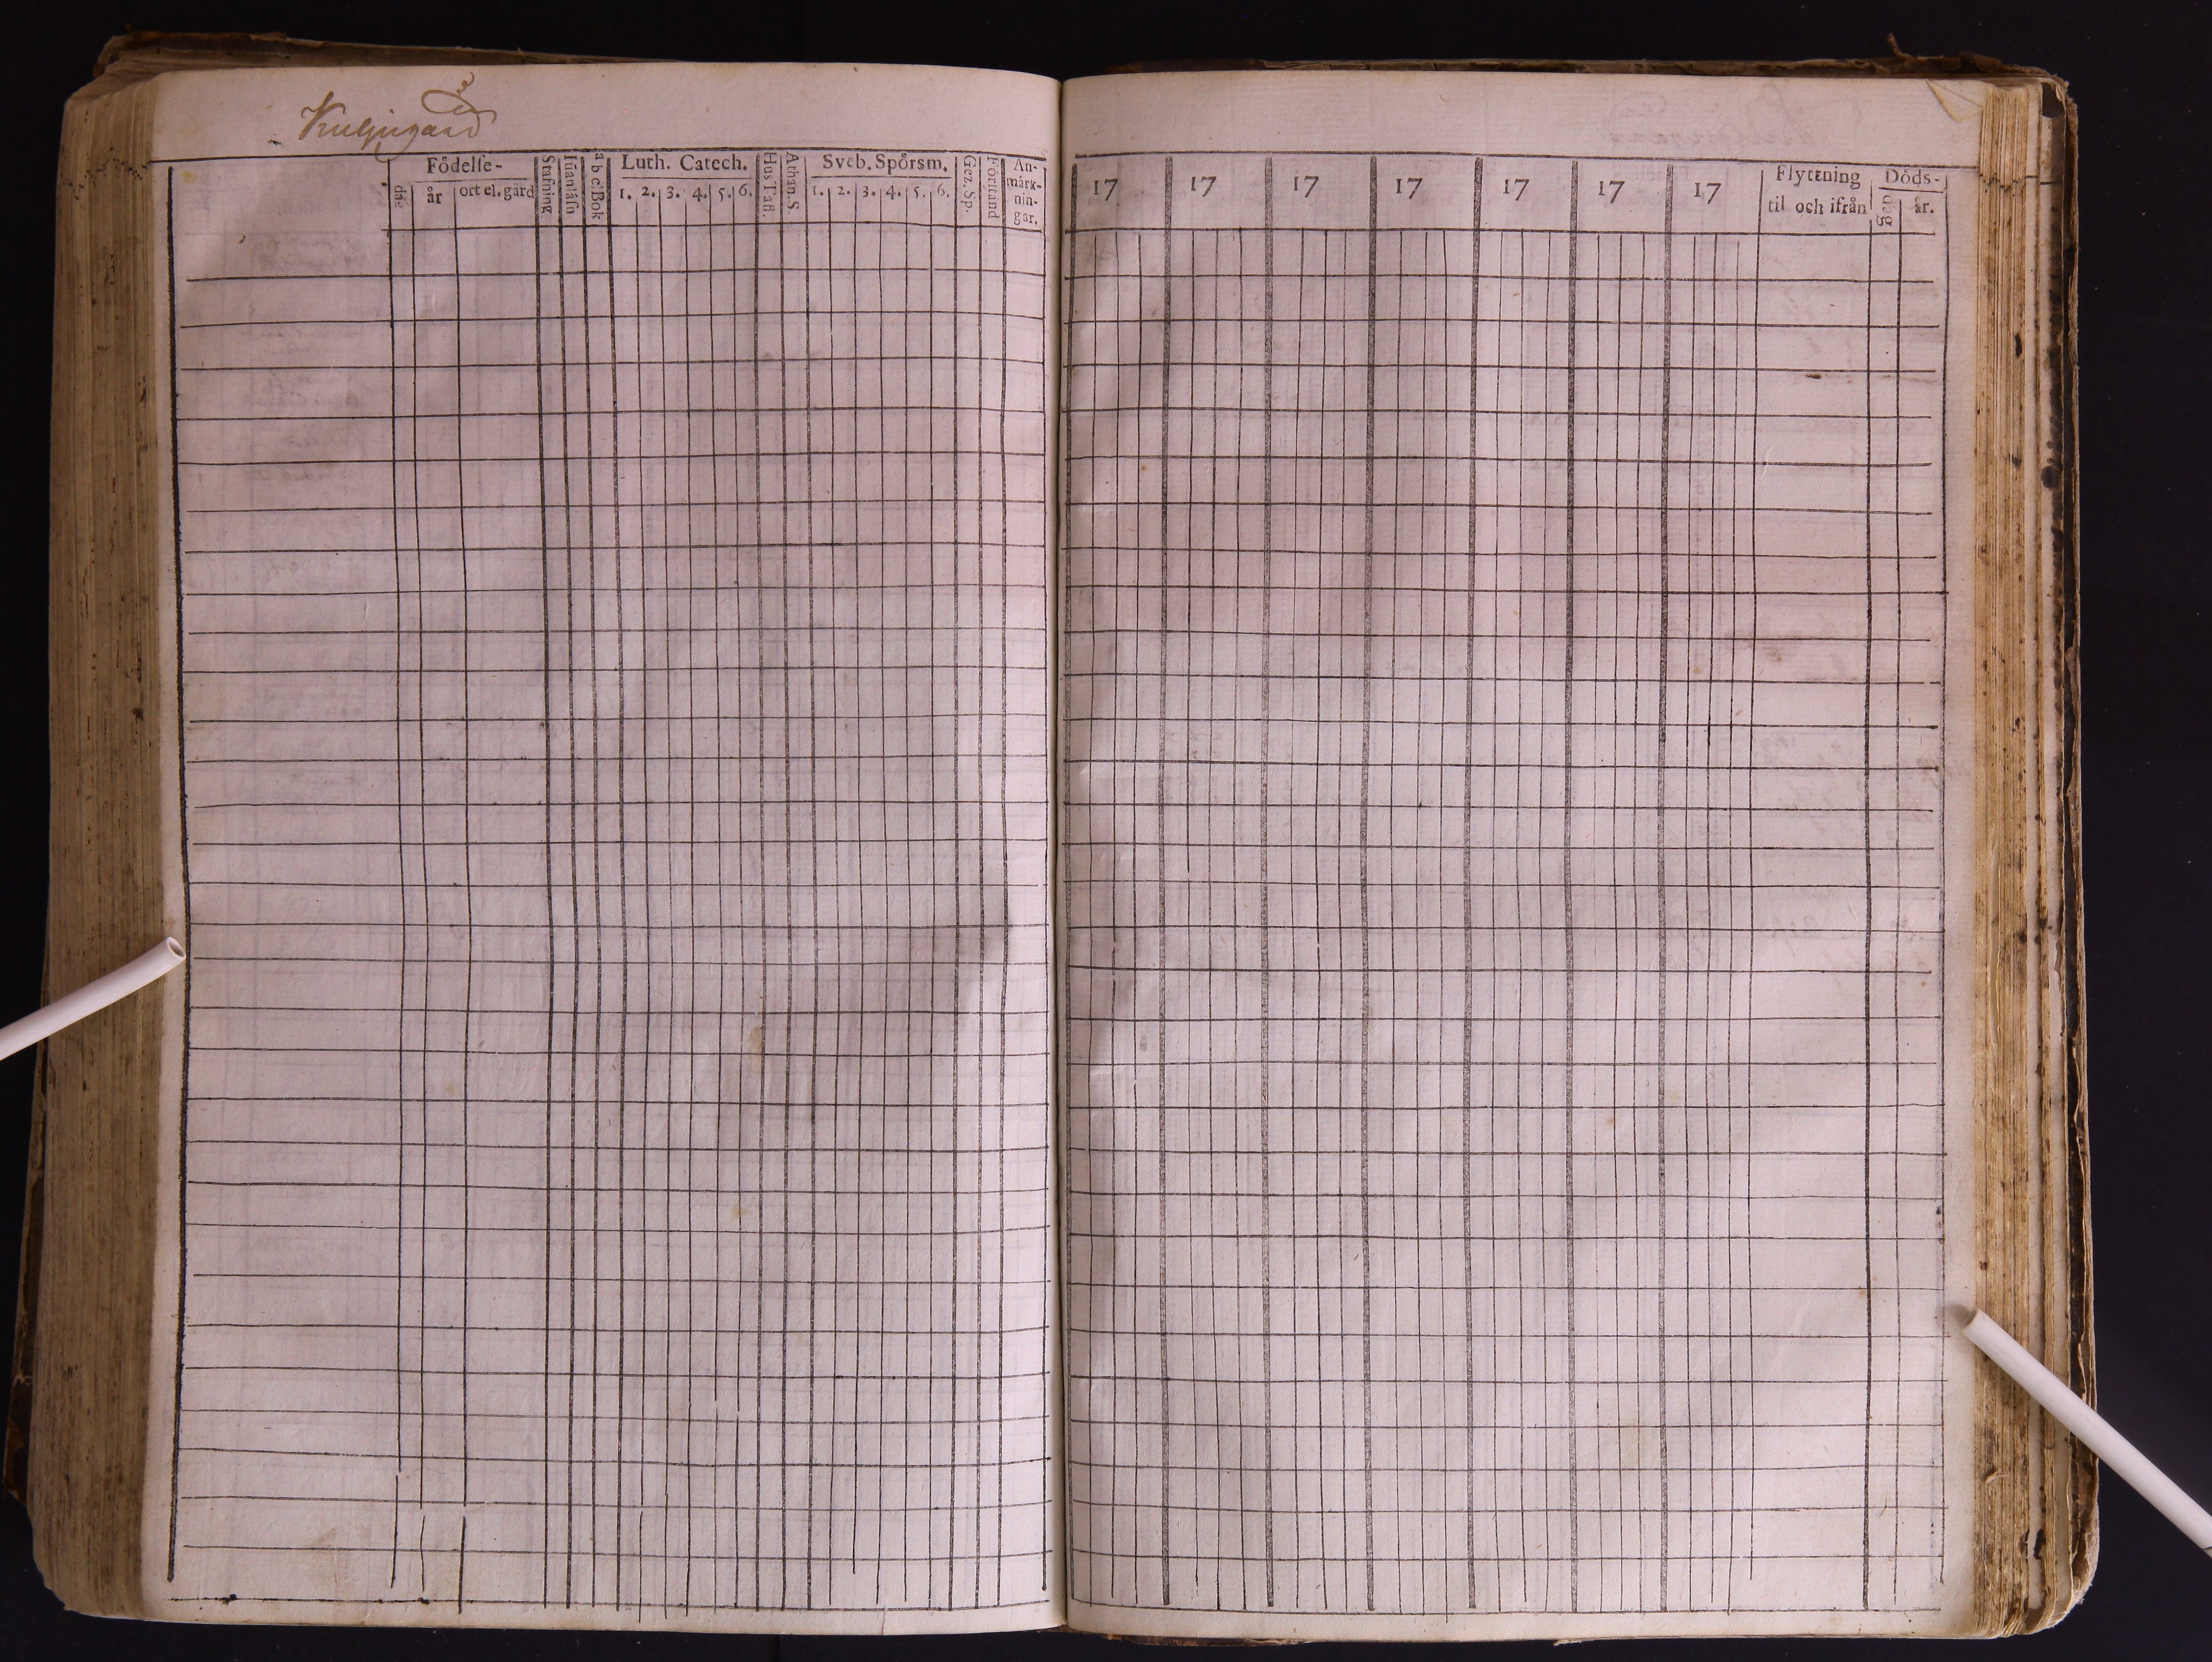 3
Födelse-
dag
år
ort el. gård
Stafning
Inanläsn
a b c Bok
Luth. Catech.
1. 2. 3. 4. 5. 6.
Hus Tafl.
Athan. S.
Sveb. Spörsm.
1. 2. 3. 4. 5. 6.
Gez. Sp.
Förstand
An-
märk-
nin-
gar.
17 17 17 17 17 17 17
Flyttning
til och ifrån
Döds-
dag
år.